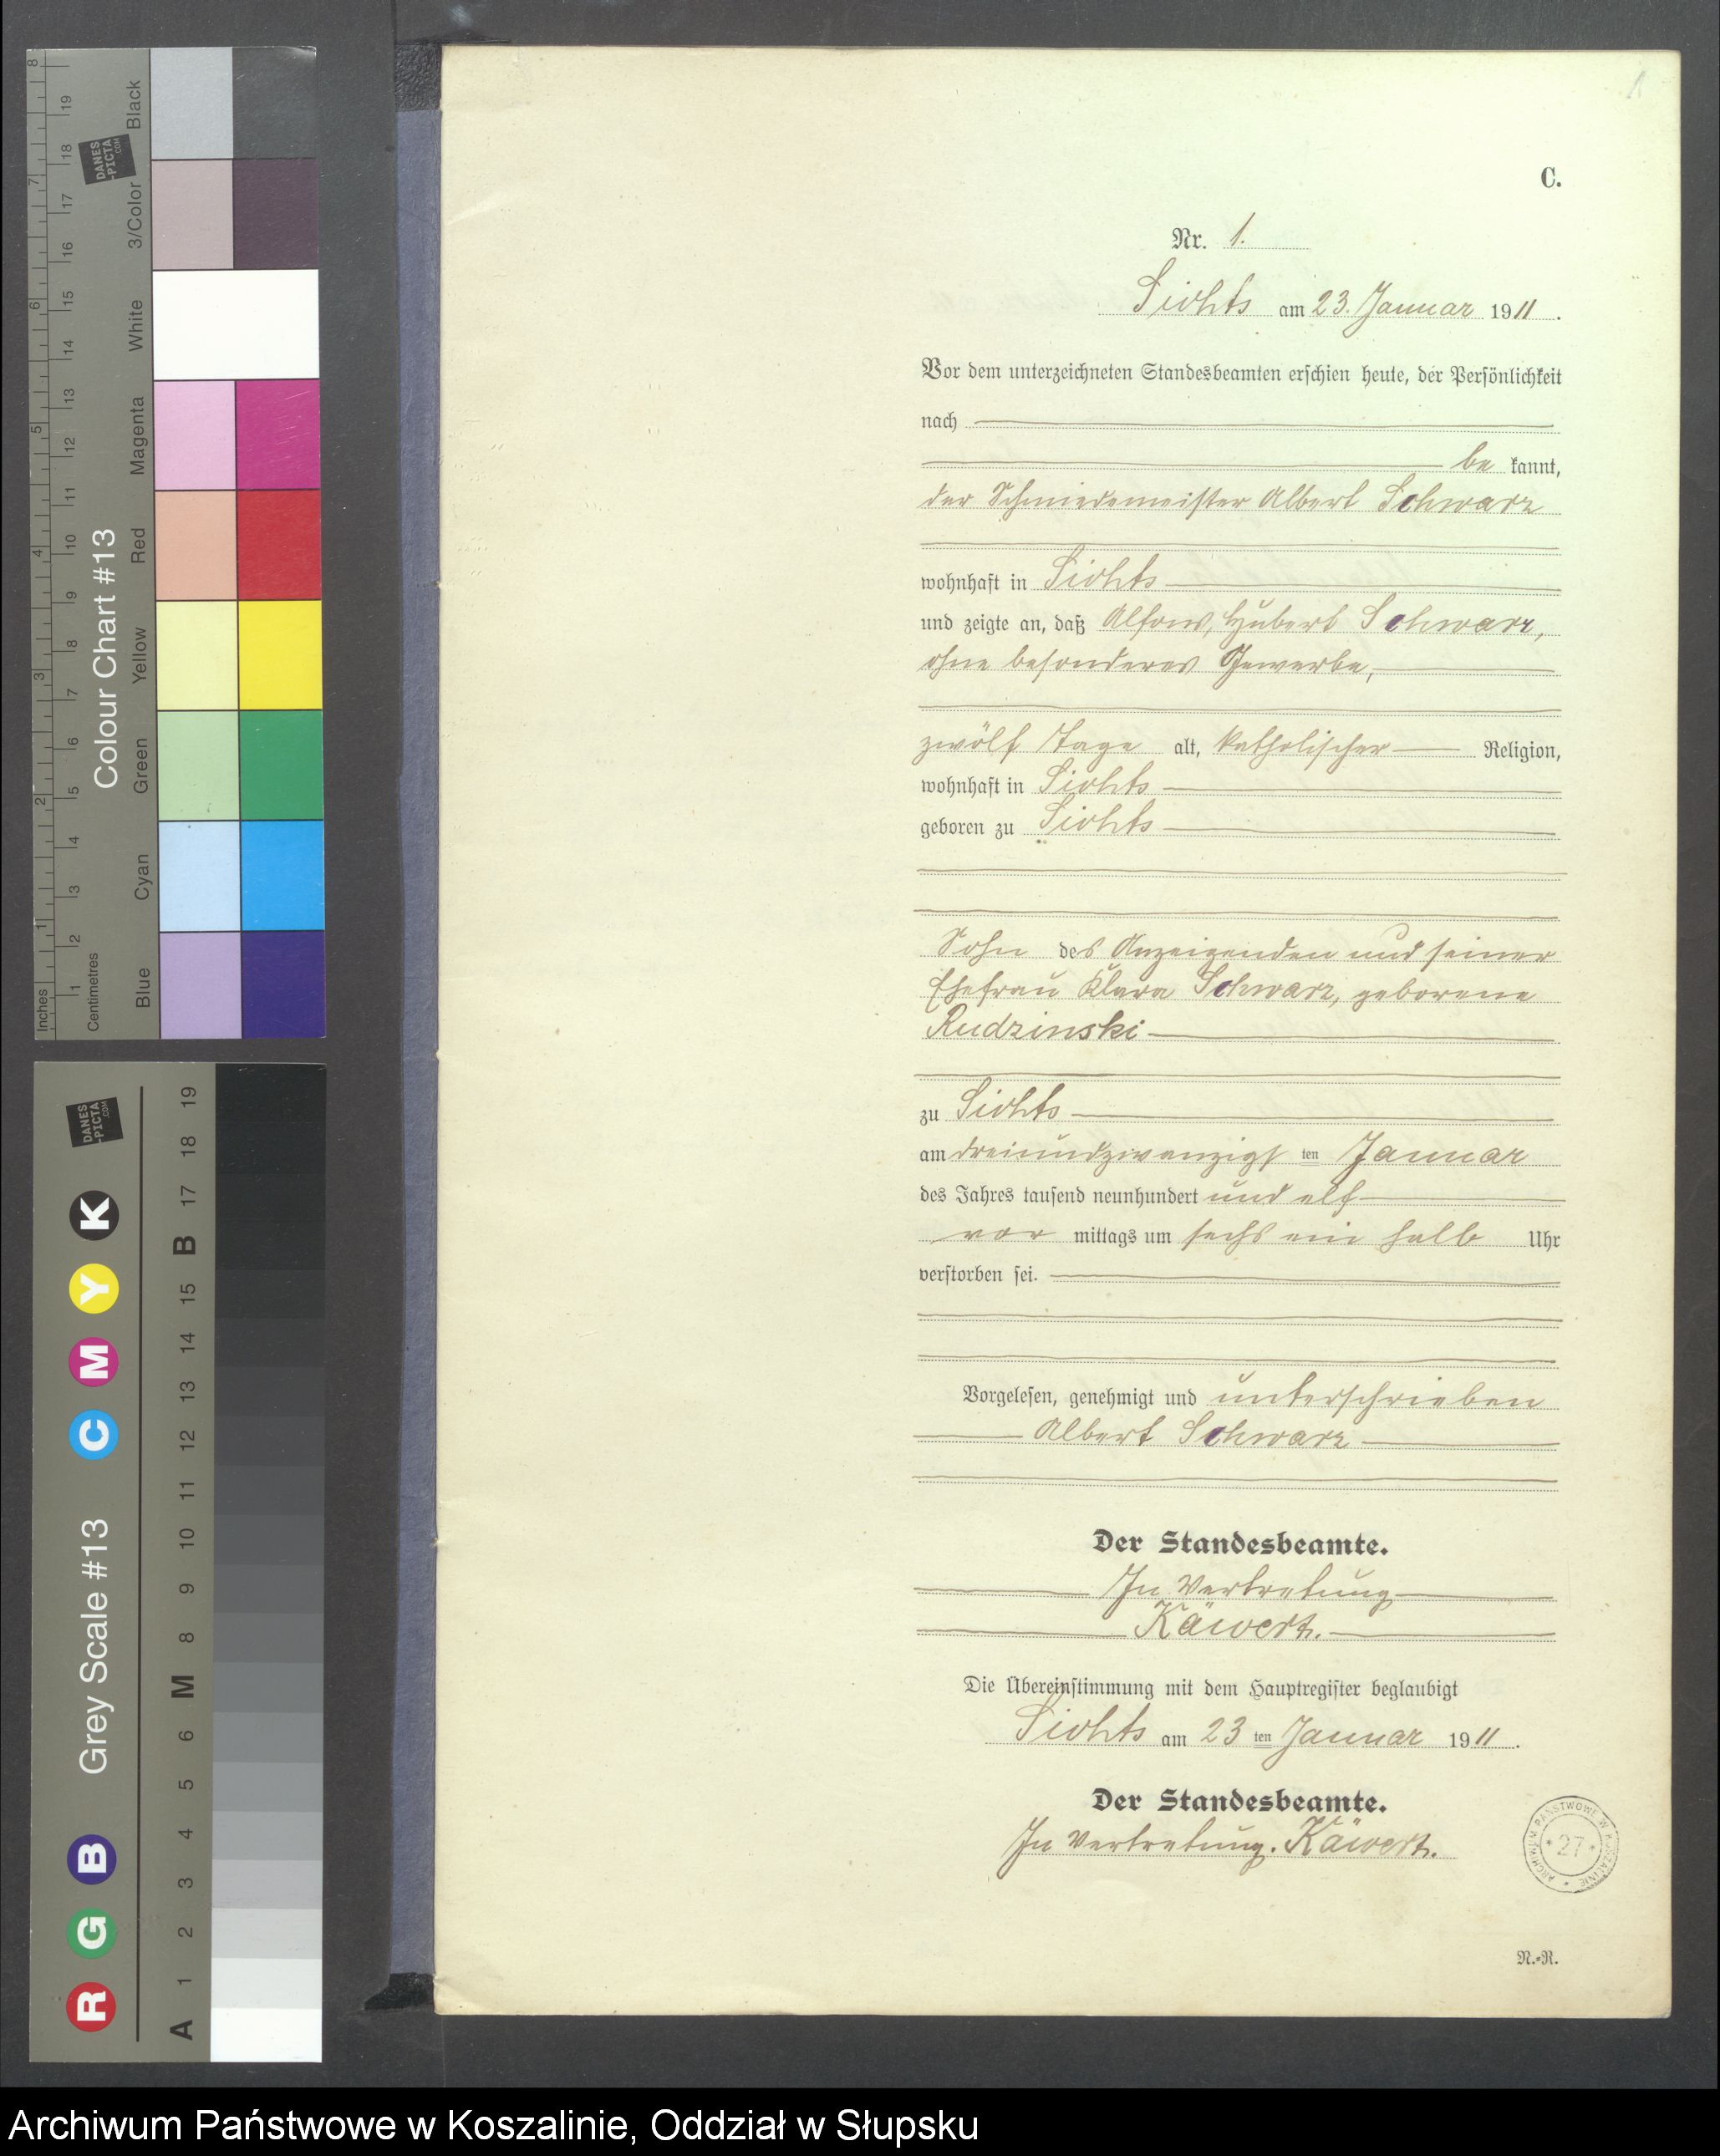 1
C.
Nr. 1.
Lichts am 23. Januar 1911.
Vor dem unterzeichneten Standesbeamten erschien heute, der Persönlichkeit
nach
be kannt,
der Schmiedemeister Albert Schwarz
wohnhaft in
und zeigte an, daß Alfons, Hubert Schwarz,
ohne besonderes Gewerbe,
zwölf Tage alt, katholischer Religion,
wohnhaft in
geboren zu
Sohn des Anzeigenden und seiner
Ehefrau Klara Schwarz, geborene
Rudzinski
zu
am dreiundzwanzigsten Januar
des Jahres tausend neunhundert und elf
vor mittags um sechs ein halb Uhr
verstorben sei.
Vorgelesen, genehmigt und unterschrieben
Albert Schwarz
Der Standesbeamte.
In Vertretung
Käwert.
Die Übereinstimmung mit dem Hauptregister beglaubigt
am 23 ten Januar 1911.
Der Standesbeamte.
In Vertretung. Käwert.
ARCHIWUM PAŃSTWOWE W KOSZALINIE
* 27 *
N.-R.
Colour Chart #13
Inches
Centimetres
Blue Cyan Green Yellow Red Magenta White 3/Color Black
DANES-PICTA.COM
1 2 3 4 5 6 7 8
1 2 3 4 5 6 7 8 9 10 11 12 13 14 15 16 17 18 19
Grey Scale #13
R G B C M Y K
DANES-PICTA.COM
A 1 2 3 4 5 6 M 8 9 10 11 12 13 14 15 B 17 18 19
Archiwum Państwowe w Koszalinie, Oddział w Słupsku